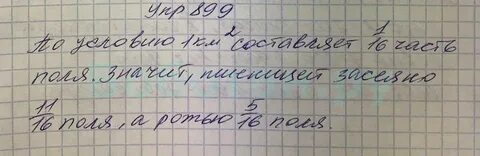 Упр 899
По условию 1 км² составляет 1/16 часть
поля. Значит, пшеницей засеяно
11/16 поля, а рожью 5/16 поля.